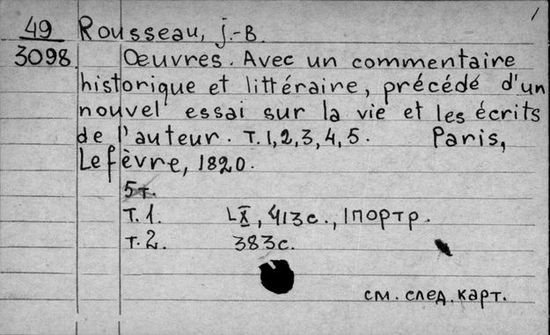 49 Rousseau, J.-B. 1
3098 Œuvres. Avec un commentaire
historique et littéraire, précédé d'un
nouvel essai sur la vie et les écrits
de l'auteur. T.1,2,3,4,5. Paris,
Lefèvre, 1820.
5т.
Т.1. LX, 413с., 1портр.
т.2. 383с.
см. след. карт.